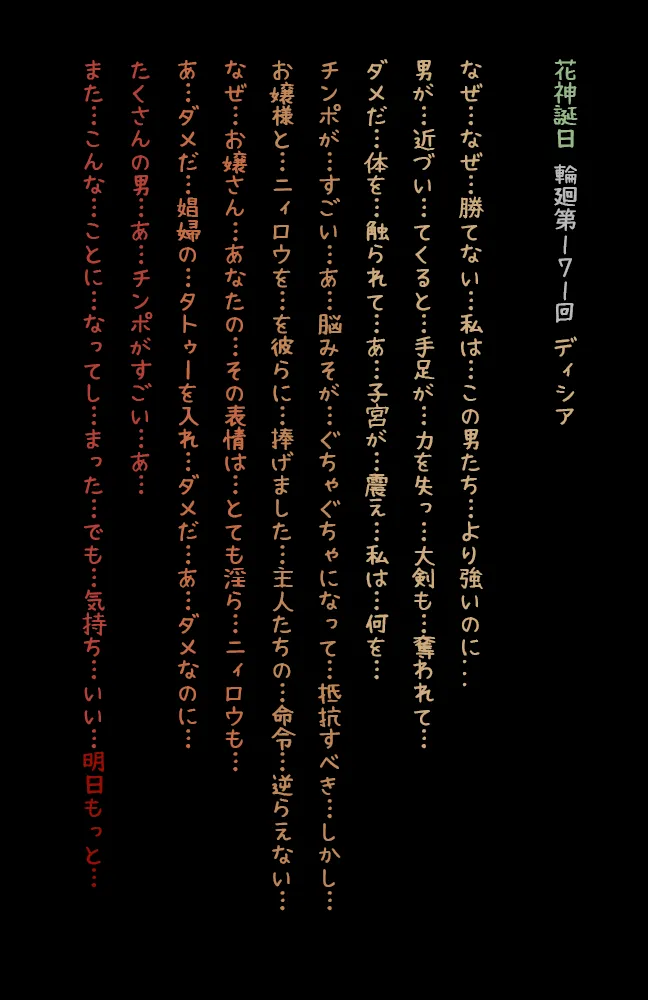 花神誕日 輪廻第一七一回 ディシア
なぜ…なぜ…勝てない…私は…この男たち…より強いのに…
男が…近づい…てくると…手足が…力を失っ…大剣も…奪われて…
ダメだ…体を…触られて…あ…子宮が…震え…私は…何を…
チンポが…すごい…あ…脳みそが…ぐちゃぐちゃになって…抵抗すべき…しかし…
お嬢様と…ニィロウを…を彼らに…捧げました…主人たちの…命令…逆らえない…
なぜ…お嬢さん…あなたの…その表情は…とても淫ら…ニィロウも…
あ…ダメだ…娼婦の…タトゥーを入れ…ダメだ…あ…ダメなのに…
たくさんの男…あ…チンポがすごい…あ…
また…こんな…ことに…なってし…まった…でも…気持ち…いい…明日もっと…